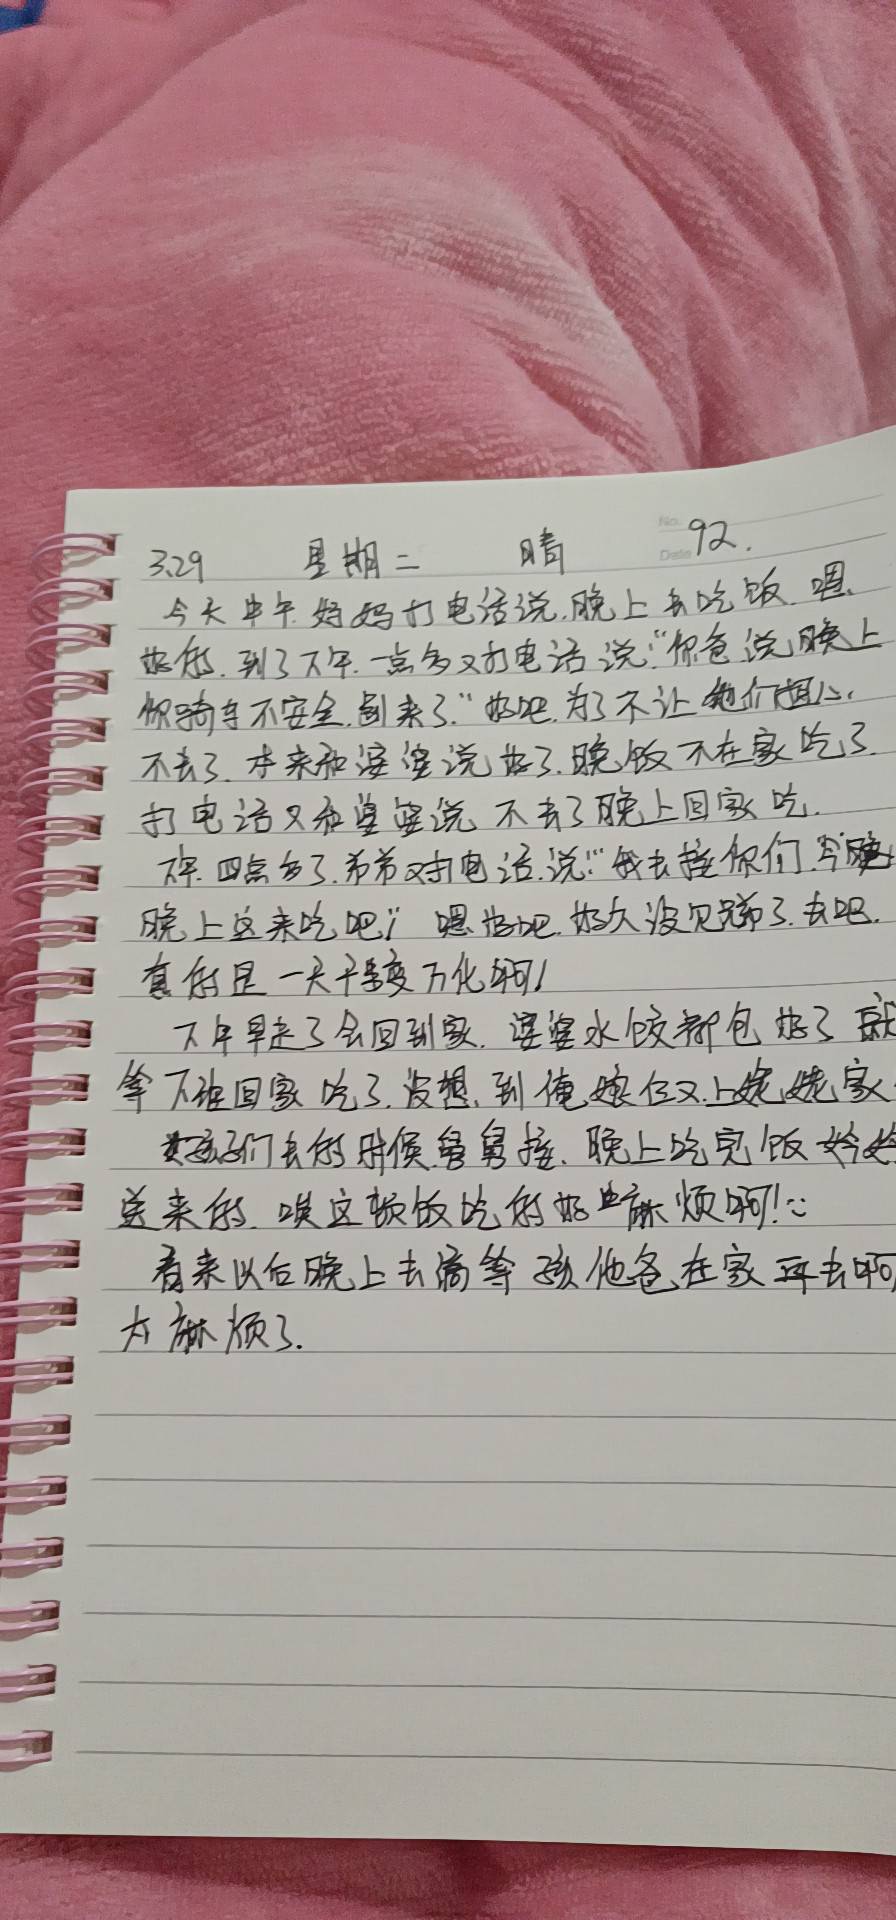 3.29 星期二 晴 No. 92.
Date
今天中午.妈妈打电话说.晚上去吃饭.嗯.
好的.到了下午.一点多又打电话说:“你爸说晚上
你骑车不安全.别来了.”好吧.为了不让他们担心.
不去了.本来和婆婆说好了.晚饭不在家吃了.
打电话又和婆婆说不去了晚上回家吃.
下午.四点多了.弟弟又打电话.说:“我去接你们.今晚
晚上这来吃吧;”嗯好吧.好久没见兄弟了.去吧.
真的是一天千变万化啊!
下午早走了会回到家.婆婆水饺都包好了就
等下班回家吃了.没想.到俺娘仨又上姥姥家
孩子们去的时候舅舅接.晚上吃完饭妗妗
送来的.唉这顿饭吃的好麻烦啊!
看来以后晚上去得等孩他爸在家再去啊
太麻烦了.